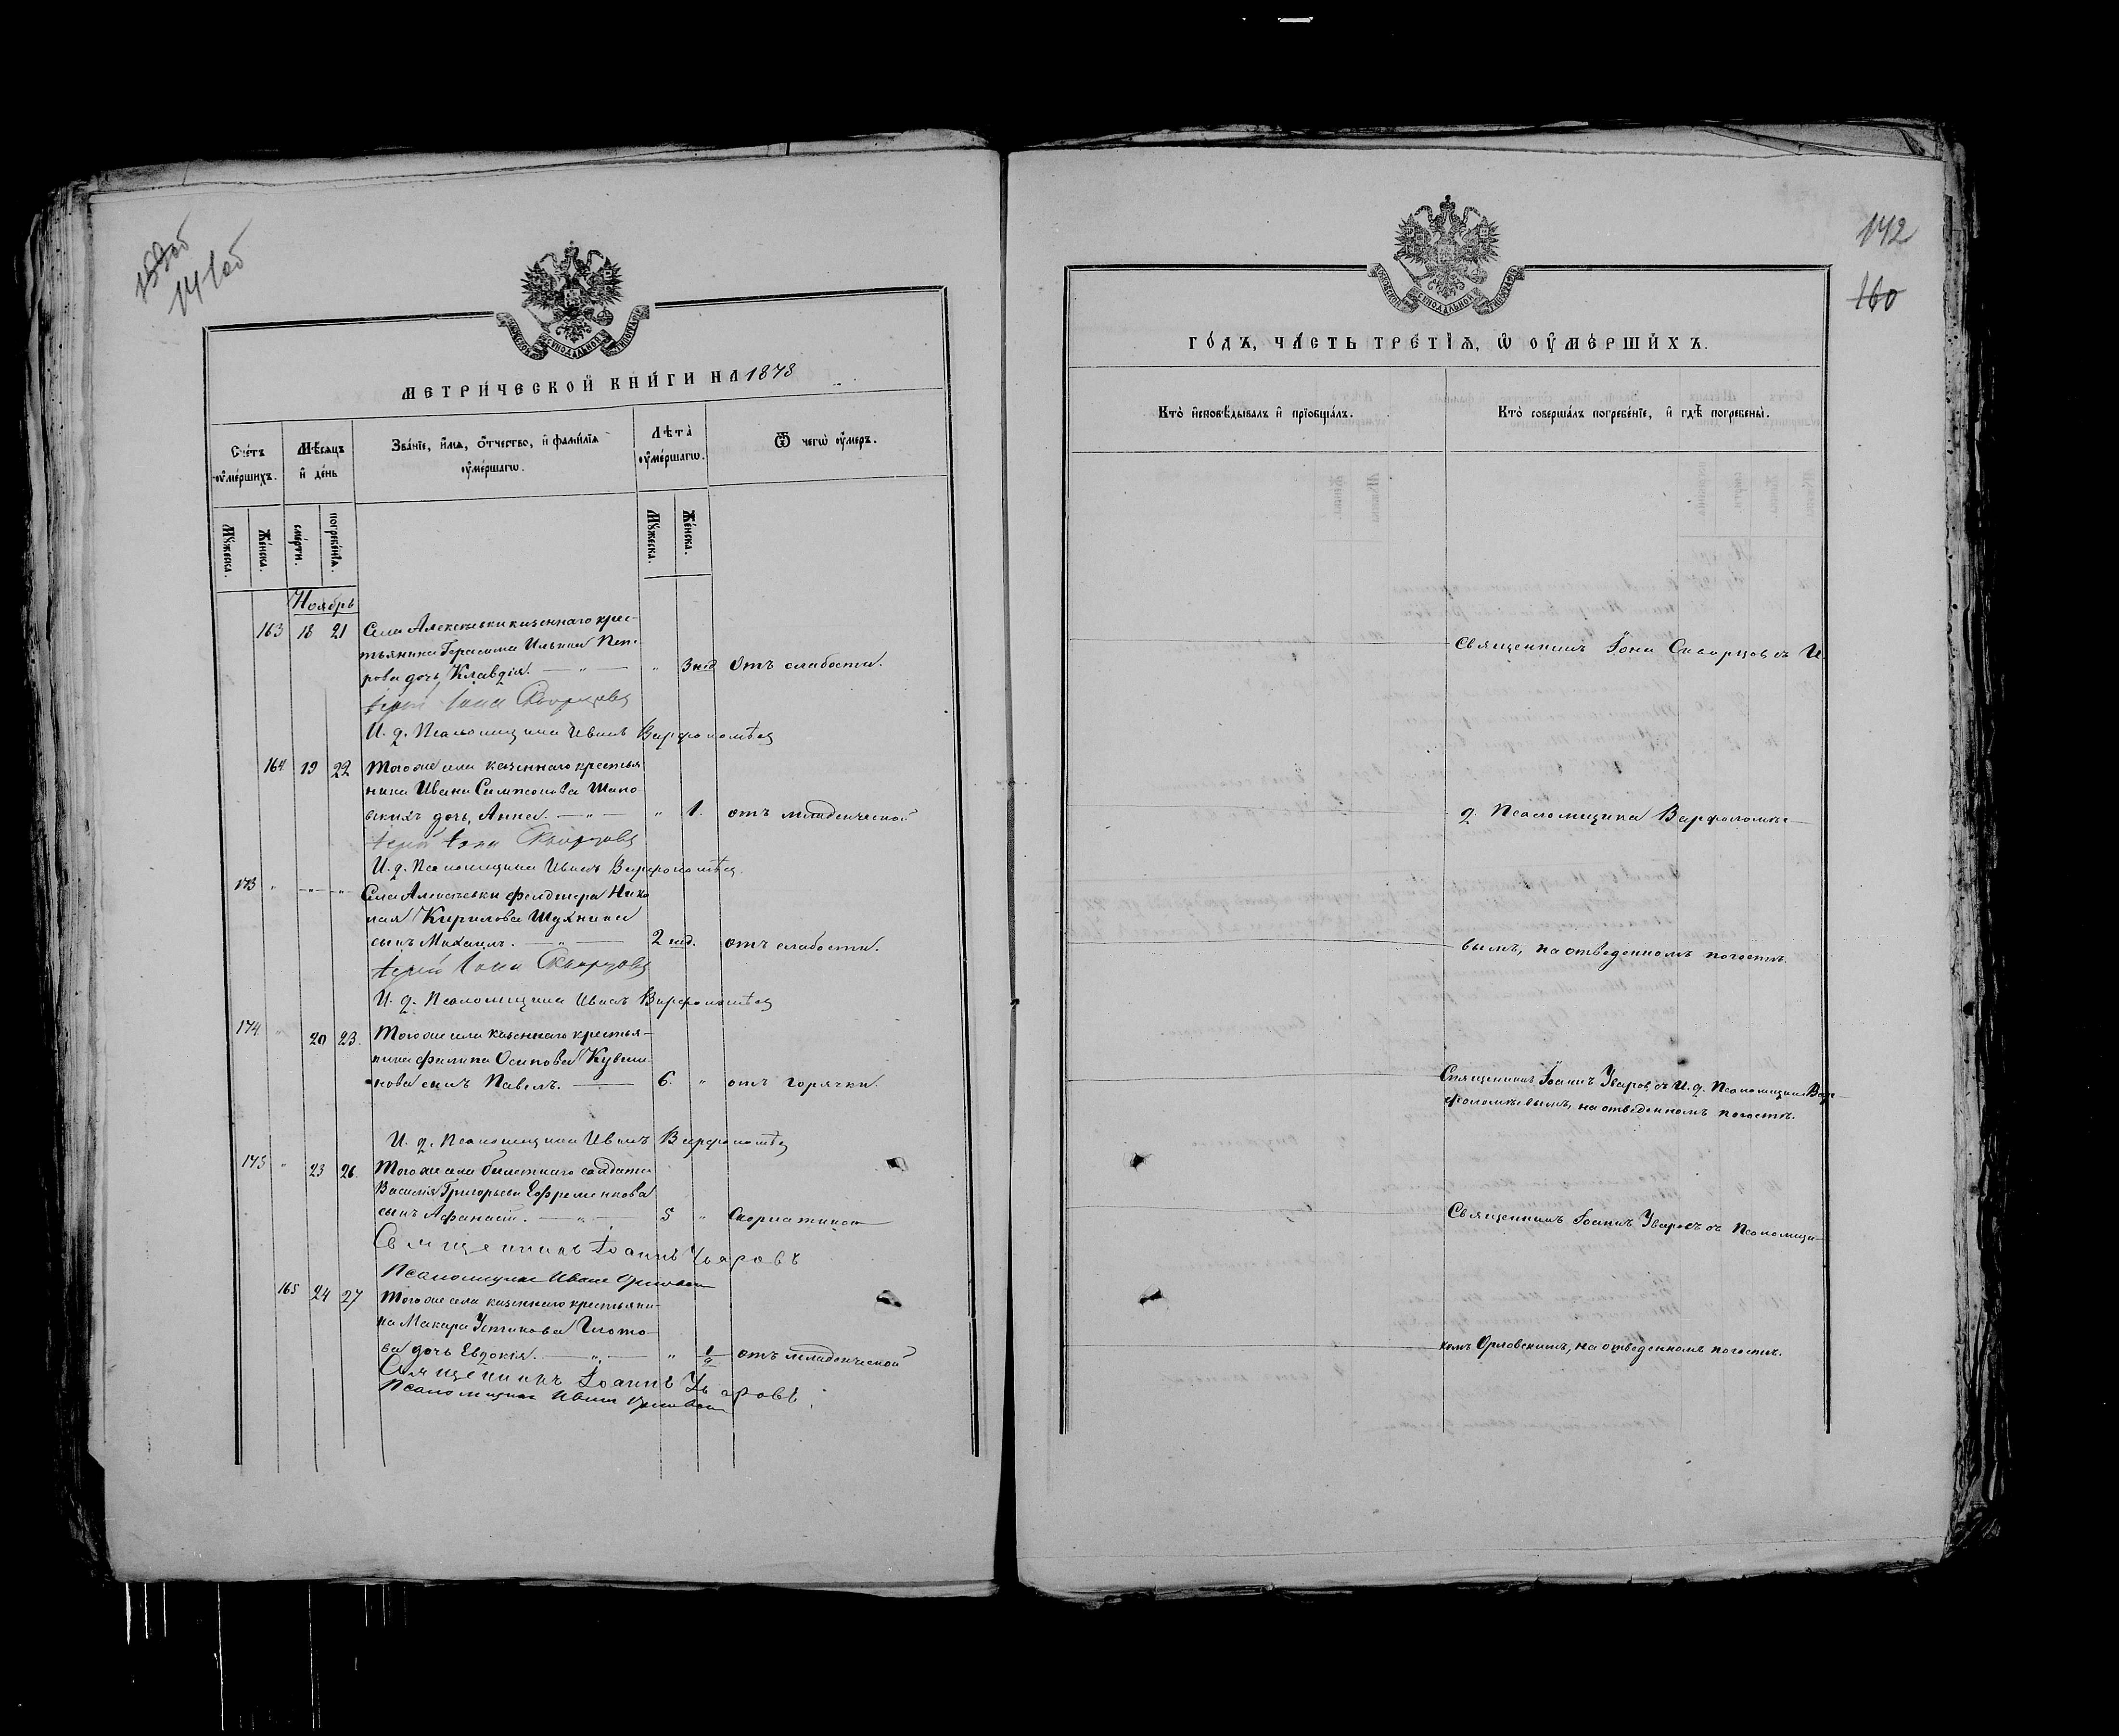 141об
МОСКОВСКОЙ СИНОДАЛЬНОЙ ТИПОГРАФІИ
МЕТРИ́ЧЕСКОЙ КНИ́ГИ НА 1878
Сче́тъ оумершихъ.
Мѣсяцъ и день
Зва́ніе, имя, о́тчество, и фами́лія оуме́ршагѡ.
Лѣта̀ оуме́ршагѡ.
Ѿ чегѡ оумеръ.
Мꙋжеска.
Женска.
смерти.
погребенїѧ.
Мꙋжеска.
Женска.
Ноябрь
163 18 21 Села Алексѣевки казеннаго крес-
тьянина Герасима Ильина Пет-
рова дочь Клавдія. — „ — „ 3 нед отъ слабости.
Іерей Іона Скворцовъ
И. д. Псаломщика Иванъ Варфоломѣев
164 19 22 Того же села казеннаго крестья
нина Ивана Сампсонова Шапо
скихъ дочь, Анна. — „ — „ 1. отъ младенческой
Іерей Іона Скворцовъ
И. д. Псаломщика Иванъ Варфоломѣев
173 „ — „ — „ Села Алексѣевки фелдшера Нико
лая Кирилова Шухнина
сынъ Михаилъ. — „ — 2 нед. отъ слабости.
Іерей Іона Скворцовъ
И. д. Псаломщика Иванъ Варфоломѣев
174 „ 20 23. Того же села казеннаго крестья-
нина Филипа Осипова Кувши
нова сынъ Павелъ. — 6. „ отъ горячки.
И. д. Псаломщика Иванъ Варфоломѣев
175 „ 23 26. Того же села билетнаго солдата
Василія Григорьева Ефременкова
сынъ Афанасій. — „ — 5 „ Скорлатиной
Священникъ Іоаннъ Уваровъ
Псаломщикъ Иванъ Орловскій
165 24 27 Того же села казеннаго крестьяни-
на Макара Устинова Глото-
ва дочь Евдокія. — „ — „ 1/2 отъ младенческой
Священникъ Іоаннъ Уваровъ
Псаломщикъ Иванъ Орловскій
142
160
МОСКОВСКОЙ СИНОДАЛЬНОЙ ТИПОГРАФІИ
ГО́ДЪ, ЧА́СТЬ ТРЕ́ТІѦ, Ѡ ОУМЕ́РШИХЪ.
Кто̀ исповѣ́дывалъ и прїобща́лъ.
Кто̀ соверша́лъ погребе́нїе, и гдѣ̀ погребены̀.
Священникъ Іона Скворцовъ съ И.
д. Псаломщика Варфоломѣе-
вымъ, на отведенномъ погостѣ.
Священникъ Іоаннъ Уваровъ съ И. д. Псаломщика Вар-
фоломѣевымъ, на отведенномъ погостѣ.
Священникъ Іоаннъ Уваровъ съ Псаломщи-
комъ Орловскимъ, на отведенномъ погостѣ.